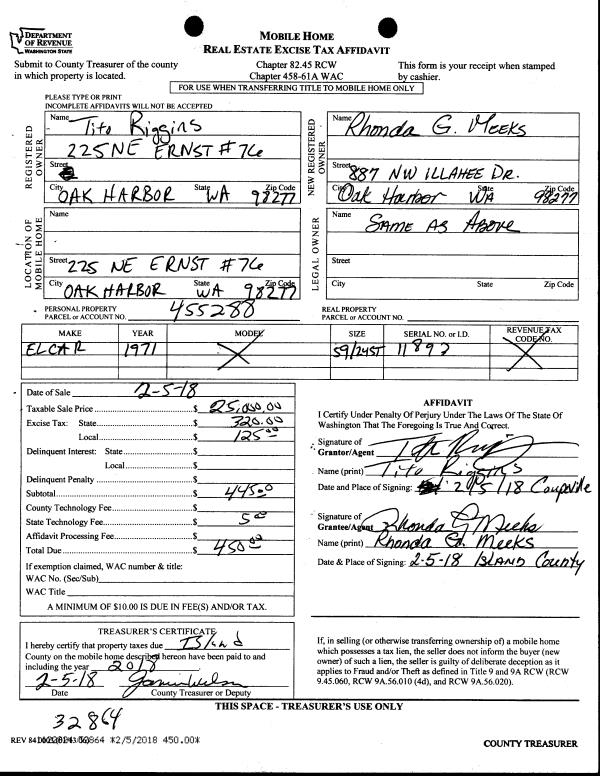 DEPARTMENT
OF REVENUE
WASHINGTON STATE
MOBILE HOME
REAL ESTATE EXCISE TAX AFFIDAVIT
Submit to County Treasurer of the county
in which property is located.
Chapter 82.45 RCW
Chapter 458-61A WAC
This form is your receipt when stamped
by cashier.
FOR USE WHEN TRANSFERRING TITLE TO MOBILE HOME ONLY
PLEASE TYPE OR PRINT
INCOMPLETE AFFIDAVITS WILL NOT BE ACCEPTED
REGISTERED
OWNER
Name Tito Riggins
225 NE ERNST #76
Street
City OAK HARBOR State WA Zip Code 98277
NEW REGISTERED
OWNER
Name Rhonda G. Meeks
Street 887 NW ILLAHEE DR.
City Oak Harbor State WA Zip Code 98277
LOCATION OF
MOBILE HOME
Name
Street 225 NE ERNST #76
City OAK HARBOR State WA Zip Code 98277
LEGAL OWNER
Name SAME AS ABOVE
Street
City State Zip Code
PERSONAL PROPERTY
PARCEL or ACCOUNT NO. 455288
REAL PROPERTY
PARCEL or ACCOUNT NO.
MAKE YEAR MODEL SIZE SERIAL NO. or I.D. REVENUE TAX
CODE NO.
ELCAR 1971 X 59/24ST 11892 X
Date of Sale 2-5-18
Taxable Sale Price $ 25,000.00
Excise Tax: State $ 320.00
Local $ 125.00
Delinquent Interest: State $
Local $
Delinquent Penalty $
Subtotal $ 445.00
County Technology Fee $
State Technology Fee $ 5.00
Affidavit Processing Fee $
Total Due $ 450.00
If exemption claimed, WAC number & title:
WAC No. (Sec/Sub)
WAC Title
A MINIMUM OF $10.00 IS DUE IN FEE(S) AND/OR TAX.
AFFIDAVIT
I Certify Under Penalty Of Perjury Under The Laws Of The State Of
Washington That The Foregoing Is True And Correct.
Signature of
Grantor/Agent
Name (print) Tito Riggins
Date and Place of Signing: 2/5/18 Coupeville
Signature of
Grantee/Agent Rhonda G Meeks
Name (print) Rhonda G. Meeks
Date & Place of Signing: 2-5-18 ISLAND County
TREASURER'S CERTIFICATE
I hereby certify that property taxes due Island
County on the mobile home described hereon have been paid to and
including the year 2018
2-5-18
Date County Treasurer or Deputy
If, in selling (or otherwise transferring ownership of) a mobile home
which possesses a tax lien, the seller does not inform the buyer (new
owner) of such a lien, the seller is guilty of deliberate deception as it
applies to Fraud and/or Theft as defined in Title 9 and 9A RCW (RCW
9.45.060, RCW 9A.56.010 (4d), and RCW 9A.56.020).
THIS SPACE - TREASURER'S USE ONLY
32864
REV 84 *2/5/2018 450.00*
COUNTY TREASURER